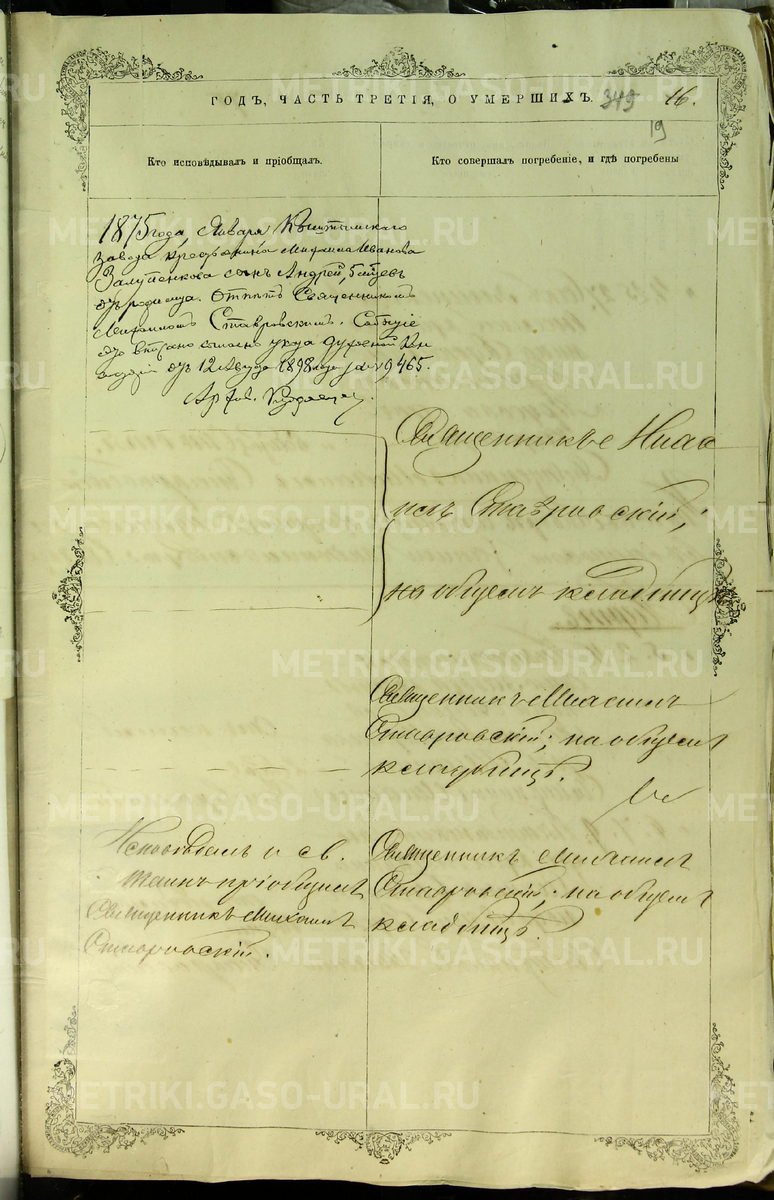 ГОДЪ, ЧАСТЬ ТРЕТІЯ, О УМЕРШИХЪ. 349 16.
19
Кто исповѣдывалъ и пріобщалъ.
Кто совершалъ погребеніе, и гдѣ погребены
1875 года, Января Кыштымскаго
завода крестьянина Михаила Иванова
сынъ Андрей,
Отпѣтъ Священникомъ
Михаиломъ Ставровскимъ.
указа Духовной Кон
12 1898 года за № 9465.
Священникъ Миха
илъ Ставровскій;
на общемъ кладбищѣ
Священникъ Михаилъ
Ставровскій; на общемъ
кладбищѣ.
Исповѣдалъ и св.
таинъ пріобщилъ
Священникъ Михаилъ
Ставровскій.
Священникъ Михаилъ
Ставровскій; на общемъ
кладбищѣ.
METRIKI.GASO-URAL.RU